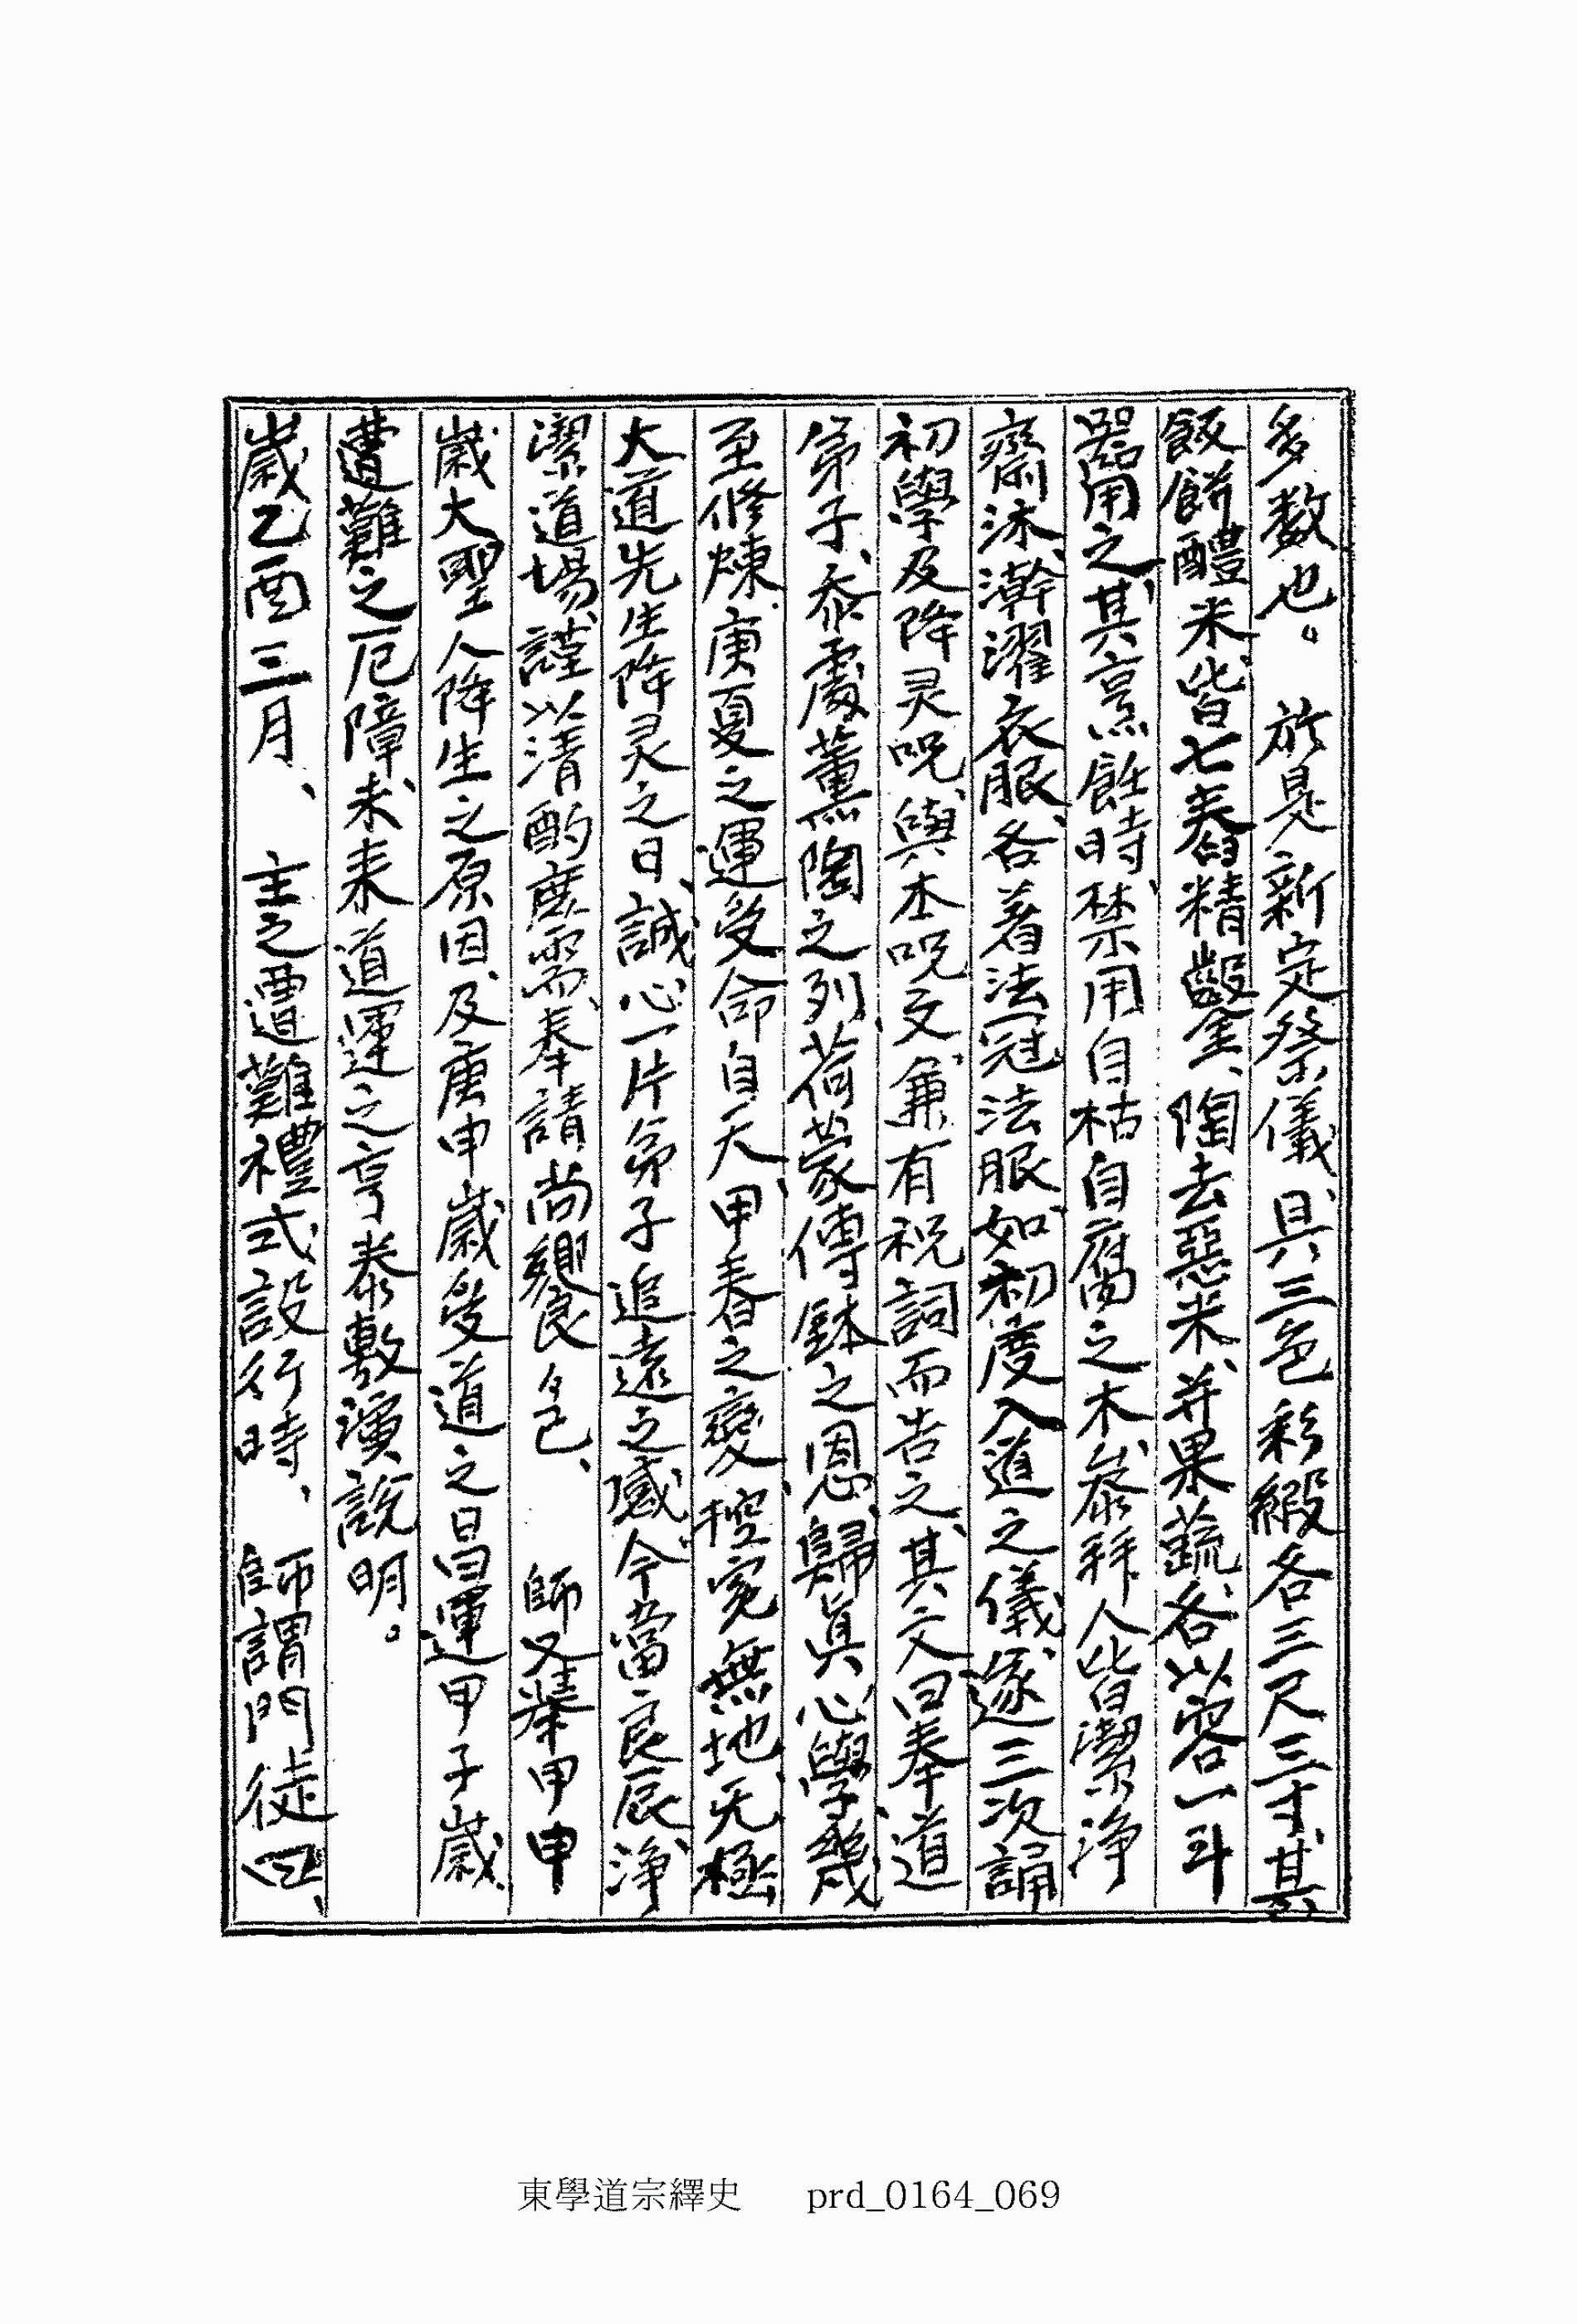 多数也。 於是新定祭儀、具三色彩緞各三尺三寸、其
飯餠醴米、皆七舂精鑿、陶去惡米、并果蔬、各以容一斗
器用之、其烹飪時、禁用自枯自腐之木、叅拜人皆潔淨
齋沐、澣濯衣服、各着法冠法服、如初度入道之儀、遂三次誦
初學及降灵呪、與本呪文、兼有祝詞而告之、其文曰奉道
弟子、忝處薰陶之列、荷蒙傳鉢之恩、歸眞心學、幾
至修煉、庚夏之運受命自天、甲春之變、控寃無地、无極
大道先生降灵之日、誠心一片弟子追遠之感、今當良辰、淨
潔道場、謹以清酌庶需、奉請尚饗 色、 師又擧甲申
歲大聖人降生之原因、及庚申歲受道之日曾運甲子歲、
遭難之厄障、未來道運之亨泰敷演說明。
歲乙酉三月、 主之遭難禮式、設行時、 師謂門徒曰、
東學道宗繹史 prd_0164_069